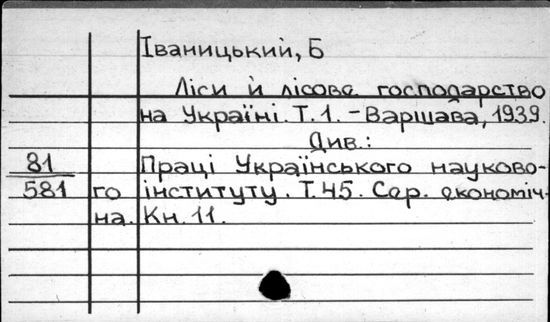 Іваницький, Б
Ліси й лісове господарство
на Україні. Т. 1. - Варшава, 1939.
Див.:
81 Праці Українського науково-
581 го інституту. Т. 45. Сер. економіч-
на. Кн. 11.